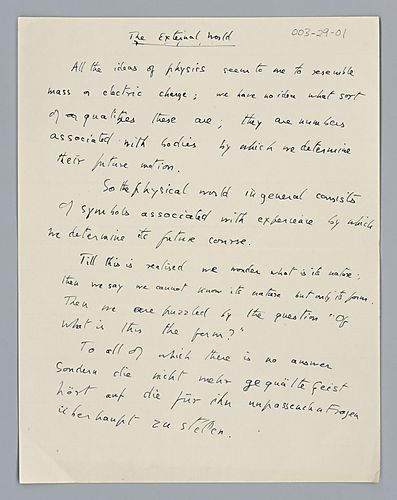 The External World
003-29-01
All the ideas of physics seem to me to resemble
mass or electric charge; we have no idea what sort
of qualities these are; they are numbers
associated with bodies by which we determine
their future motion.
So the physical world in general consists
of symbols associated with experience by which
we determine its future course.
Till this is realised we wonder what is its nature;
then we say we cannot know its nature but only its form.
Then we are puzzled by the question "Of
what is this the form?"
To all of which there is no answer
Sondern die nicht mehr gequälte Geist
hört auf die für ihn unpassenden Fragen
überhaupt zu stellen.